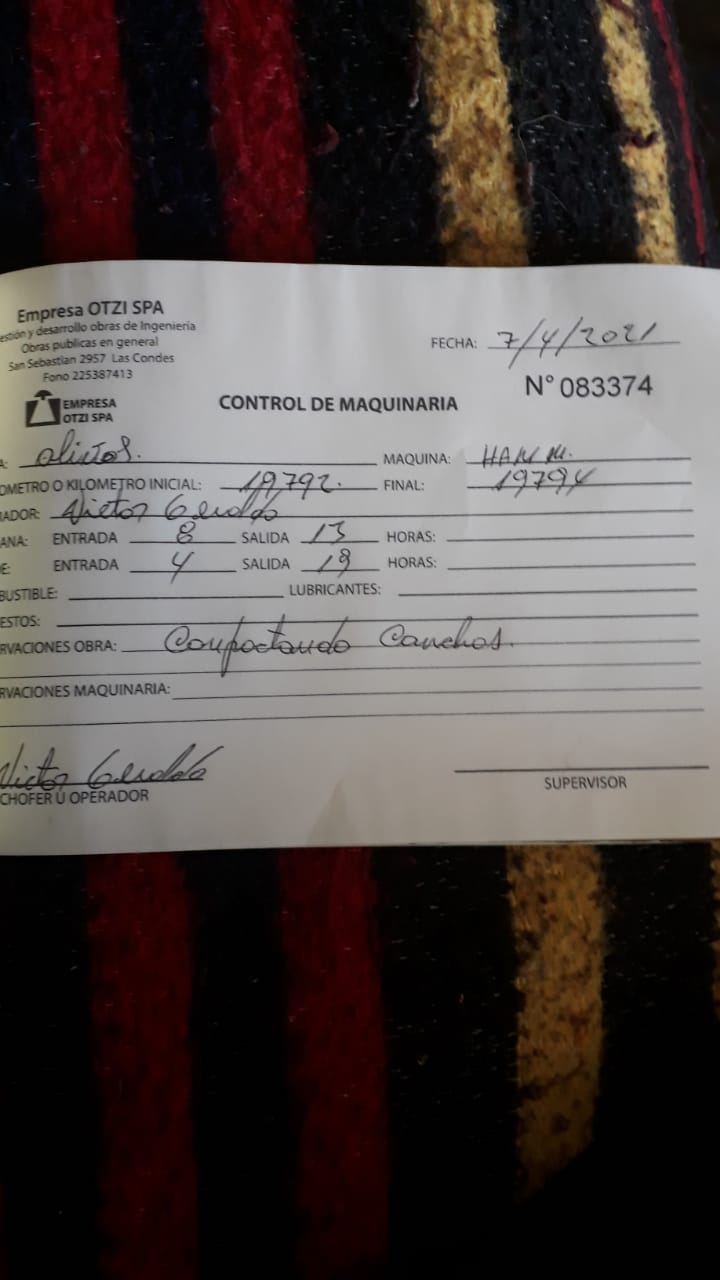 Empresa OTZI SPA
estión y desarrollo obras de Ingeniería
Obras publicas en general
San Sebastian 2957 Las Condes
Fono 225387413
FECHA: 7/4/2021
N° 083374
EMPRESA
OTZI SPA
CONTROL DE MAQUINARIA
A: olivos. MAQUINA: HAMM.
OMETRO O KILOMETRO INICIAL: 19,792. FINAL: 19794
ADOR: Victor Geraldo
ANA: ENTRADA 8 SALIDA 13 HORAS:
E: ENTRADA 4 SALIDA 18 HORAS:
BUSTIBLE: LUBRICANTES:
ESTOS:
RVACIONES OBRA: Compactando Canchas.
RVACIONES MAQUINARIA:
Victor Geraldo
CHOFER U OPERADOR
SUPERVISOR